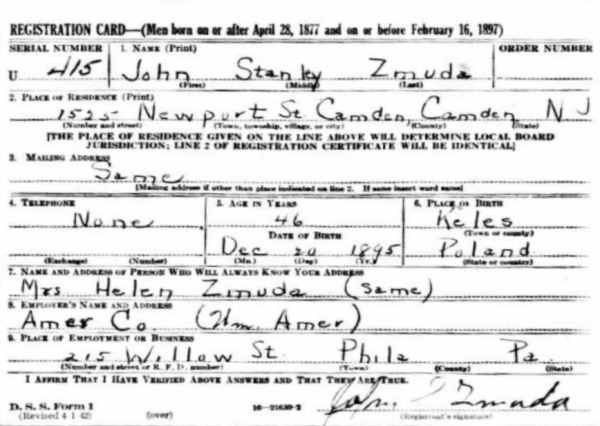 REGISTRATION CARD—(Men born on or after April 28, 1877 and on or before February 16, 1897)
SERIAL NUMBER 1. NAME (Print) ORDER NUMBER
U 415 John Stanley Zmuda
(First) (Middle) (Last)
2. PLACE OF RESIDENCE (Print)
1525 Newport St Camden, Camden N J
(Number and street) (Town, township, village, or city) (County) (State)
[THE PLACE OF RESIDENCE GIVEN ON THE LINE ABOVE WILL DETERMINE LOCAL BOARD
JURISDICTION; LINE 2 OF REGISTRATION CERTIFICATE WILL BE IDENTICAL]
3. MAILING ADDRESS
Same
[Mailing address if other than place indicated on line 2. If same insert word same]
4. TELEPHONE 5. AGE IN YEARS 6. PLACE OF BIRTH
None 46 Keles
DATE OF BIRTH (Town or county)
Dec 20 1895 Poland
(Exchange) (Number) (Mo.) (Day) (Yr.) (State or country)
7. NAME AND ADDRESS OF PERSON WHO WILL ALWAYS KNOW YOUR ADDRESS
Mrs Helen Zmuda (Same)
8. EMPLOYER'S NAME AND ADDRESS
Amer Co. (Wm. Amer)
9. PLACE OF EMPLOYMENT OR BUSINESS
215 Willow St. Phila Pa.
(Number and street or R. F. D. number) (Town) (County) (State)
I AFFIRM THAT I HAVE VERIFIED ABOVE ANSWERS AND THAT THEY ARE TRUE.
D. S. S. Form 1
(Revised 4 1 42) (over) 16—21630-2 John S Zmuda
(Registrant's signature)